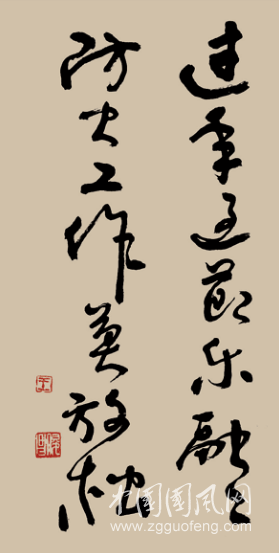 逢年过节乐融融
防火工作莫放松
中國國風网
www.zgguofeng.com